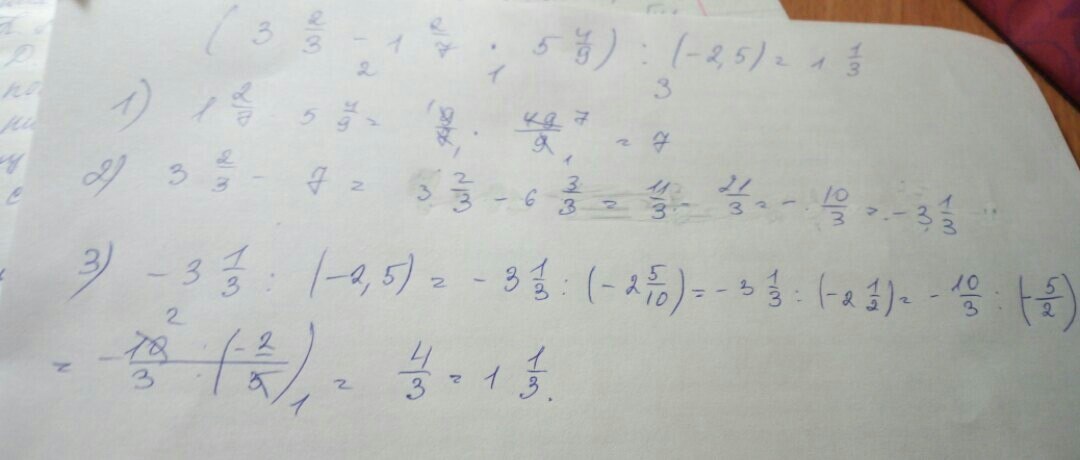 ( 3 2/3 - 1 2/7 · 5 4/9 ) : (-2,5) = 1 1/3
2 1 3
1) 1 2/7 · 5 4/9 = 9/7 · 49/9 = 7
2) 3 2/3 - 7 = 3 2/3 - 6 3/3 = 11/3 - 21/3 = - 10/3 = - 3 1/3
3) - 3 1/3 : (-2,5) = - 3 1/3 : (-2 5/10) = - 3 1/3 : (-2 1/2) = - 10/3 : (-5/2)
= - 10/3 · (-2/5) = 4/3 = 1 1/3.